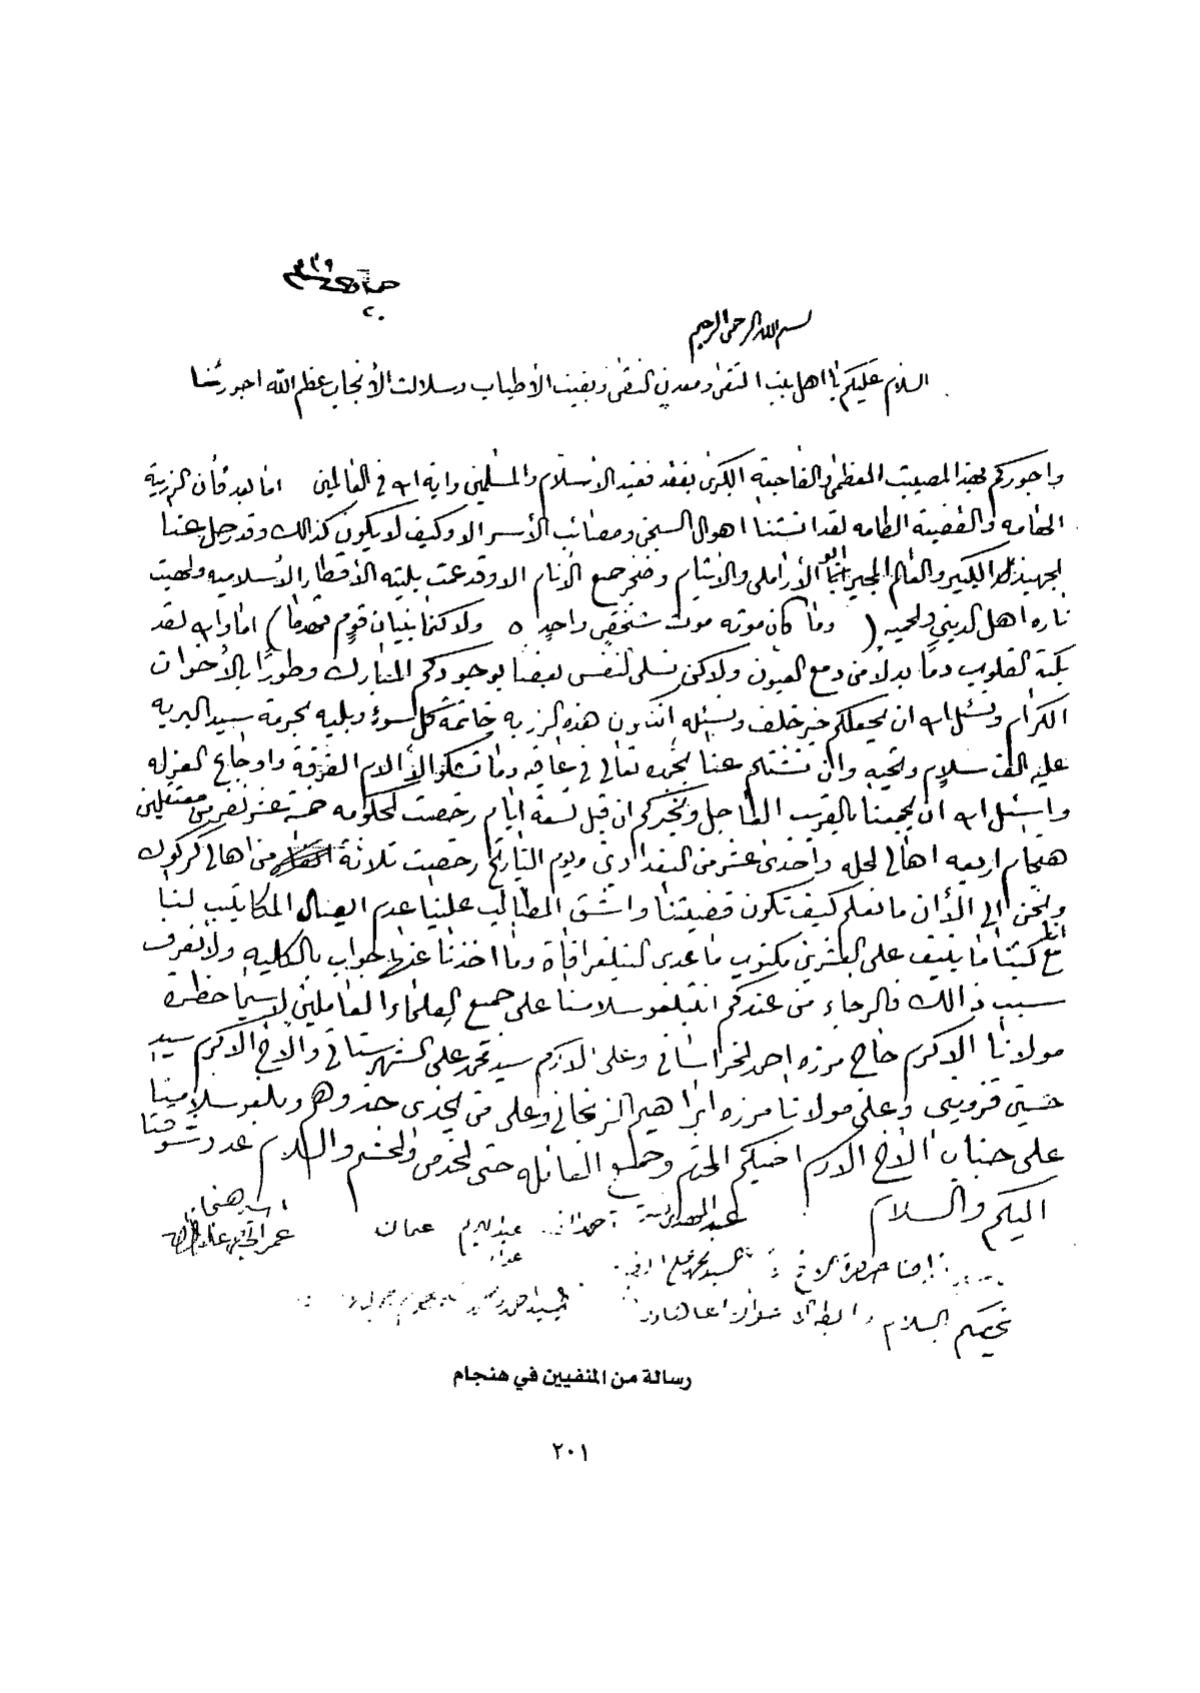 ٣٣٩
جمادى
٢٠
بسم الله الرحمن الرحيم
السلام عليكم يا اهل بيت التقى ومعدن النقى وبقيت الأطياب وسلالت الأنجاب عظم الله اجورنا
واجوركم بهذا المصيبت العظمى والفاجعة الكبرى بفقد فقيد الاسلام والمسلمين واية الله في العالمين اما بعد فأن الرزية
الهامه والقضية الطامه لقد انستنا اهوال السجن ومصائب الأسر الا وكيف لا يكون كذالك وقد رحل عنا
الكبير والعالم ابو الأرامل والايتام وضج جميع الأنام الا وقد عت بليته الأقطار الأسلاميه ولهبت
ناره اهل الدين ( وما كان موته موت شخص واحد ٥ ولاكنما بنيان قوم تهدما ) اما والله لقد
بكة القلوب دما بدلا من دمع العيون ولاكن نسلى النفس بعضنا بوجودكم المبارك وطورًا بالأخوان
الكرام ونسئل الله ان يجعلكم خير خلف ونسئله ان تكون هذه الرزيه خاتمة كل سوء وبليه بحرمة سيد البريه
عليه الف سلام وتحيه وان تسئلتم عنا بحمده تعالى في عافيه وما نشكو الا الام الفرقة واوجاع العزله
واسئل الله ان يجمعنا بالقريب العاجل ونخبركم ان قبل تسعة ايام رخصت الحكومه خمسة عشر نفر من معتقلين
هنجام اربعه اهالي الحله واحدى عشر من البغدادي ويوم التاريخ رخصت ثلاثة من اهالي كركوك
ونحن الى الأن ما نعلم كيف تكون قضيتنا واشق المطالب علينا عدم ايصال المكاتيب لنا
مع اننا كتبنا ما ينيف على العشرين مكتوب ما عدى التيلغرافاة وما اخذنا عنها جواب بالكليه ولا نعرف
سبب ذالك فالرجاء من عندكم ان تبلغو سلامنا على جميع العلماء العاملين لاسيما حظرة
مولانا الاكرم حاج مرزه احمد الخراساني وعلى الاكرم سيد محمد على الشهرستاني والاخ الاكرم سيد
حسين قزويني وعلى مولانا مرزه ابراهيم الزنجاني وعلى من يحذى حذوهم وبلغو سلامينا
على جناب الأخ الاكرم اخيكم المحترم وجميع العائله حتى الخدم والحشم والسلام عدد شوقنا
اليكم والسلام
عبد المهدي عبد الكريم عمان اسير هنجام
عواد عمر الحاج علوان
السيد محمد
نخصكم السلام
رسالة من المنفيين في هنجام
٢٠١